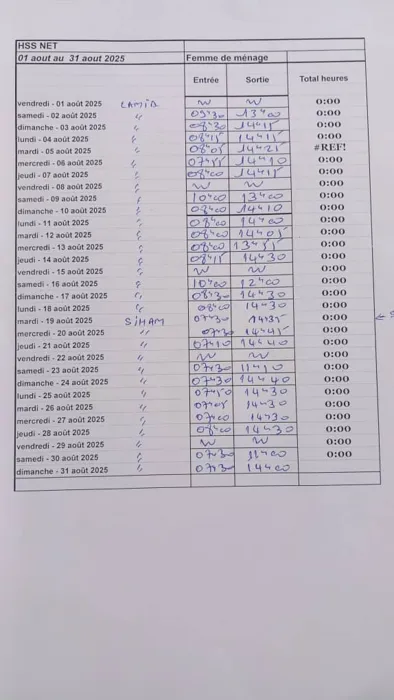 HSS NET
01 aout au 31 aout 2025 Femme de ménage
Entrée Sortie Total heures
vendredi - 01 août 2025 LAMIA 0:00
samedi - 02 août 2025 〃 09h30 13h00 0:00
dimanche - 03 août 2025 〃 08h30 14h15 0:00
lundi - 04 août 2025 〃 08h15 14h15 0:00
mardi - 05 août 2025 〃 08h05 14h25 #REF!
mercredi - 06 août 2025 〃 14h10 0:00
jeudi - 07 août 2025 〃 08h00 14h15 0:00
vendredi - 08 août 2025 〃 0:00
samedi - 09 août 2025 〃 10h00 13h00 0:00
dimanche - 10 août 2025 〃 08h00 14h10 0:00
lundi - 11 août 2025 〃 08h00 14h00 0:00
mardi - 12 août 2025 〃 08h00 14h05 0:00
mercredi - 13 août 2025 〃 08h00 13h55 0:00
jeudi - 14 août 2025 〃 08h15 14h30 0:00
vendredi - 15 août 2025 〃 0:00
samedi - 16 août 2025 〃 10h00 12h00 0:00
dimanche - 17 août 2025 〃 08h30 14h30 0:00
lundi - 18 août 2025 〃 08h00 14h30 0:00
mardi - 19 août 2025 SiHAM 07h30 14h35 0:00
mercredi - 20 août 2025 〃 07h30 14h45 0:00
jeudi - 21 août 2025 〃 07h10 14h40 0:00
vendredi - 22 août 2025 〃 0:00
samedi - 23 août 2025 〃 07h30 11h10 0:00
dimanche - 24 août 2025 〃 07h30 14h40 0:00
lundi - 25 août 2025 〃 07h50 14h30 0:00
mardi - 26 août 2025 〃 14h30 0:00
mercredi - 27 août 2025 〃 07h00 14h30 0:00
jeudi - 28 août 2025 〃 08h00 14h30 0:00
vendredi - 29 août 2025 〃 0:00
samedi - 30 août 2025 〃 07h30 11h00 0:00
dimanche - 31 août 2025 〃 07h30 14h00